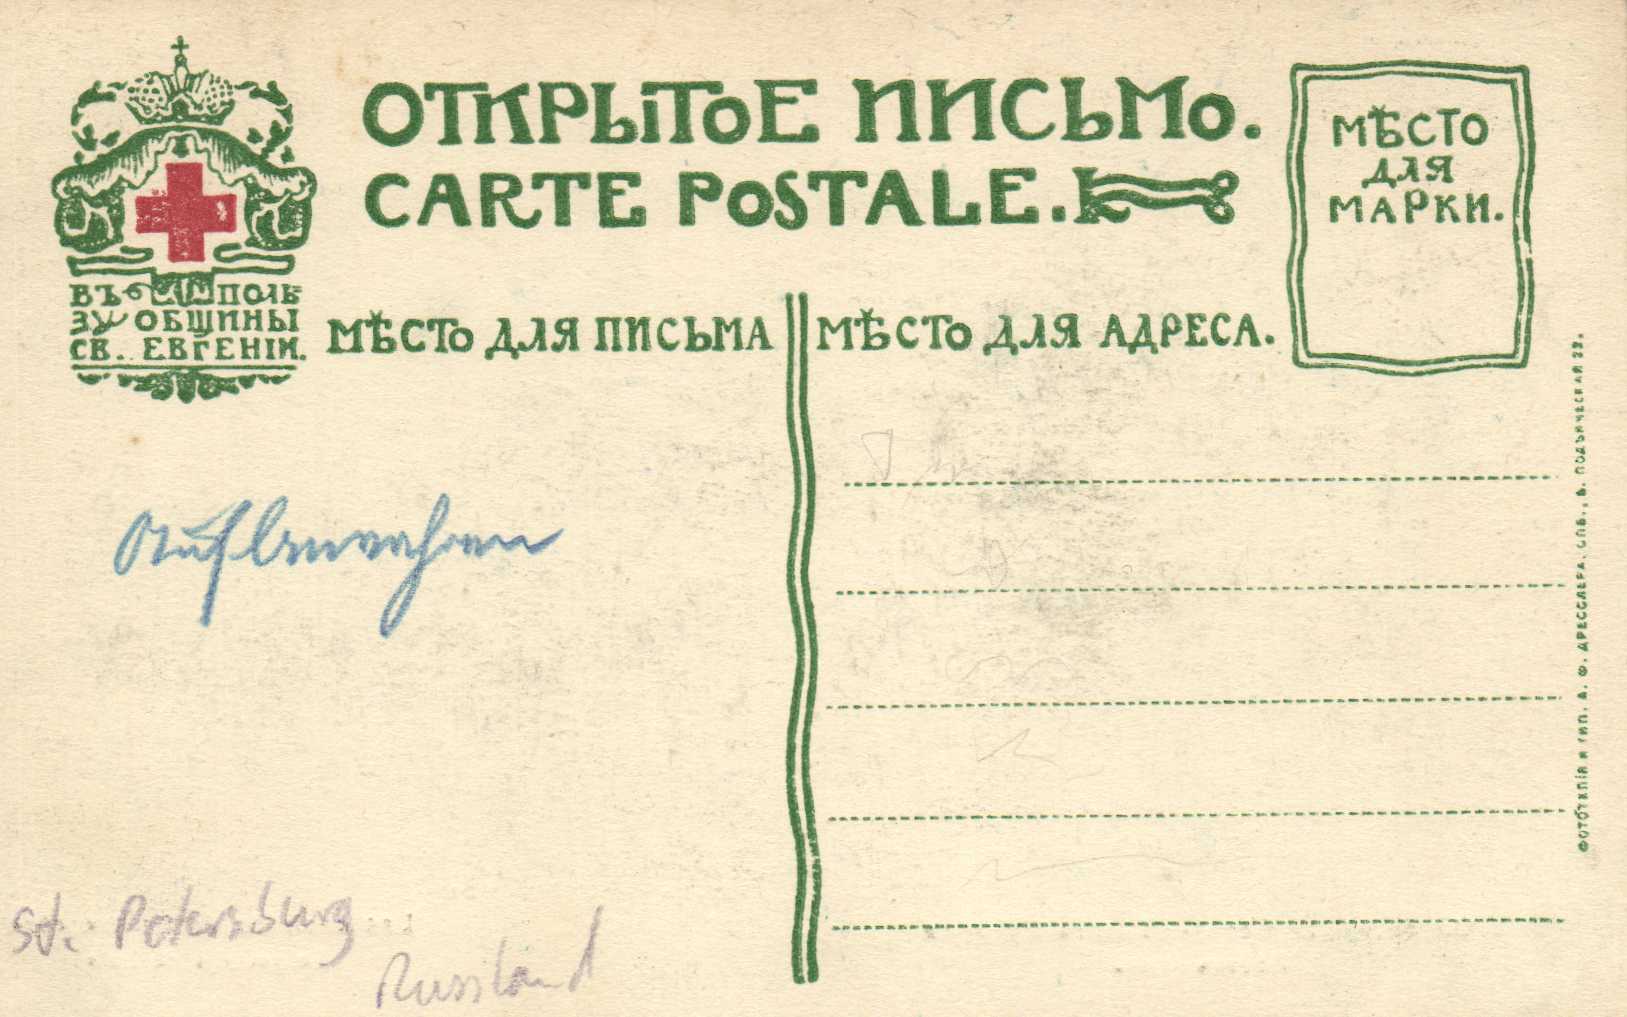 ОТКРЫТОЕ ПИСЬМО.
CARTE POSTALE.
МѢСТО
ДЛЯ
МАРКИ.
ВЪ ПОЛЬ
ЗУ ОБЩИНЫ
СВ. ЕВГЕНІИ.
МѢСТО ДЛЯ ПИСЬМА
МѢСТО ДЛЯ АДРЕСА.
Aufbewahren
St. Petersburg
Russland
ФОТОТИПІЯ И ТИП. А. Ф. ДРЕССЛЕРА. СПБ., Б. ПОДЪЯЧЕСКАЯ 22.